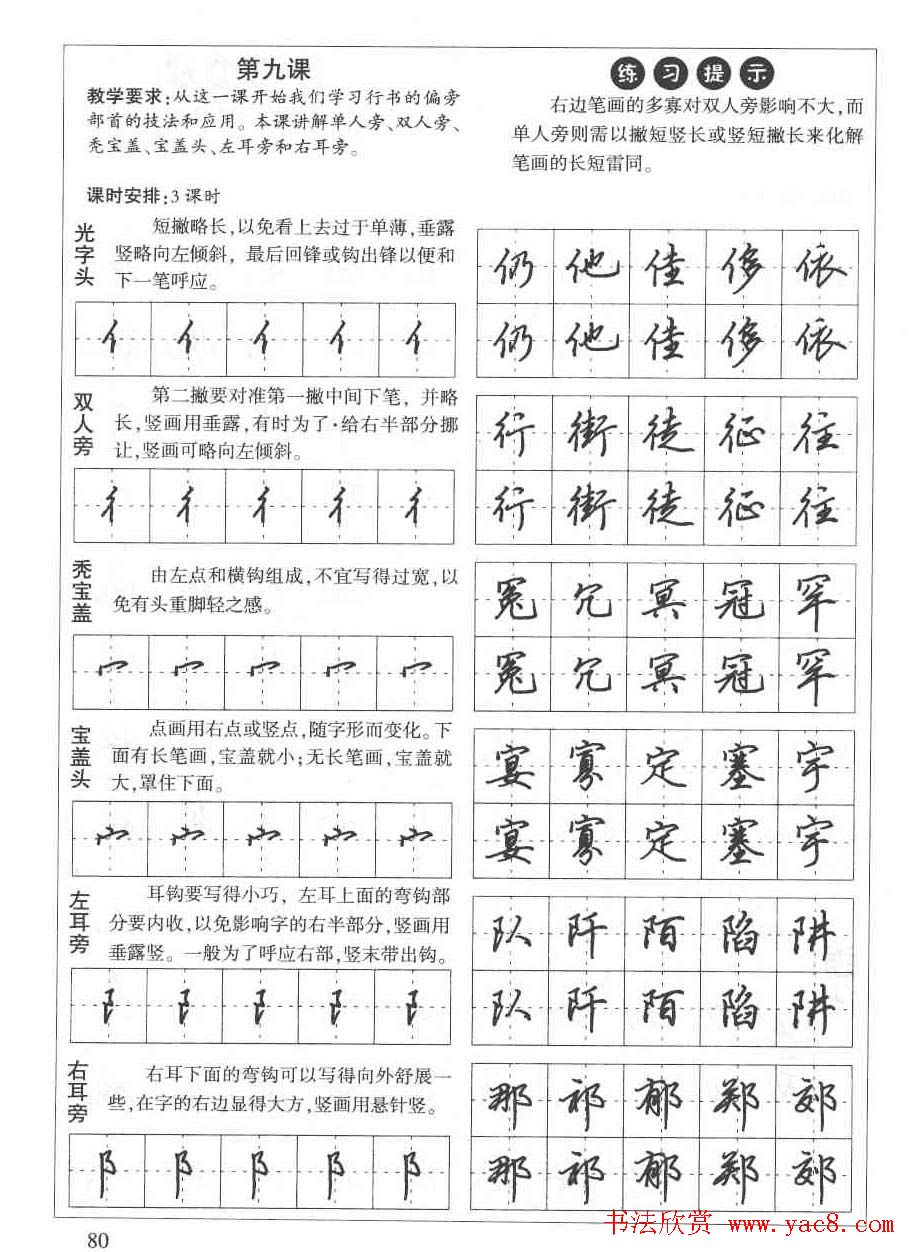 第九课
教学要求:从这一课开始我们学习行书的偏旁
部首的技法和应用。本课讲解单人旁、双人旁、
秃宝盖、宝盖头、左耳旁和右耳旁。
课时安排:3课时
练习提示
右边笔画的多寡对双人旁影响不大,而
单人旁则需以撇短竖长或竖短撇长来化解
笔画的长短雷同。
光字头
短撇略长,以免看上去过于单薄,垂露
竖略向左倾斜，最后回锋或钩出锋以便和
下一笔呼应。
亻亻亻亻亻
仍他佳侈依
仍他佳侈依
双人旁
第二撇要对准第一撇中间下笔，并略
长,竖画用垂露,有时为了·给右半部分挪
让,竖画可略向左倾斜。
彳彳彳彳彳
行街徒征往
行街徒征往
秃宝盖
由左点和横钩组成,不宜写得过宽,以
免有头重脚轻之感。
冖冖冖冖冖
冤冗冥冠罕
冤冗冥冠罕
宝盖头
点画用右点或竖点,随字形而变化。下
面有长笔画,宝盖就小;无长笔画,宝盖就
大,罩住下面。
宀宀宀宀宀
宴寡定塞宇
宴寡定塞宇
左耳旁
耳钩要写得小巧，左耳上面的弯钩部
分要内收,以免影响字的右半部分,竖画用
垂露竖。一般为了呼应右部,竖末带出钩。
阝阝阝阝阝
队阡陌陷阱
队阡陌陷阱
右耳旁
右耳下面的弯钩可以写得向外舒展一
些,在字的右边显得大方,竖画用悬针竖。
阝阝阝阝阝
那祁郁郑郊
那祁郁郑郊
80
书法欣赏 www.yac8.com